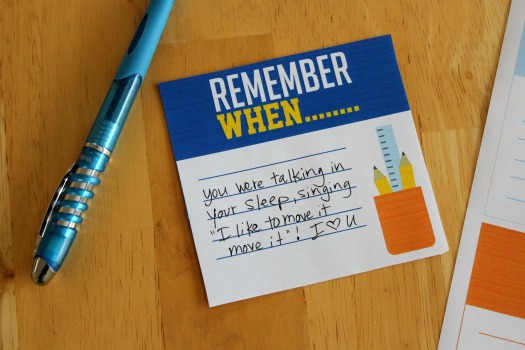 REMEMBER
WHEN........
you were talking in
your sleep, singing
"I like to move it
move it"! I ♡ U